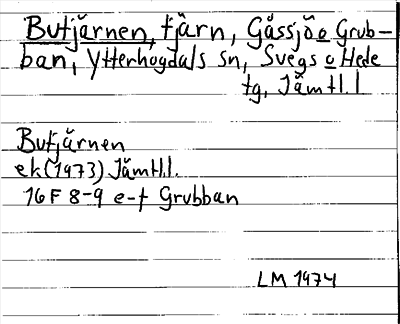 Butjärnen, tjärn, Gåssjö o Grub-
ban, Ytterhogdals sn, Svegs o Hede
tg, Jämtl.l
Butjärnen
ek (1973) Jämtl.l.
16F 8-9 e-f Grubban
LM 1974